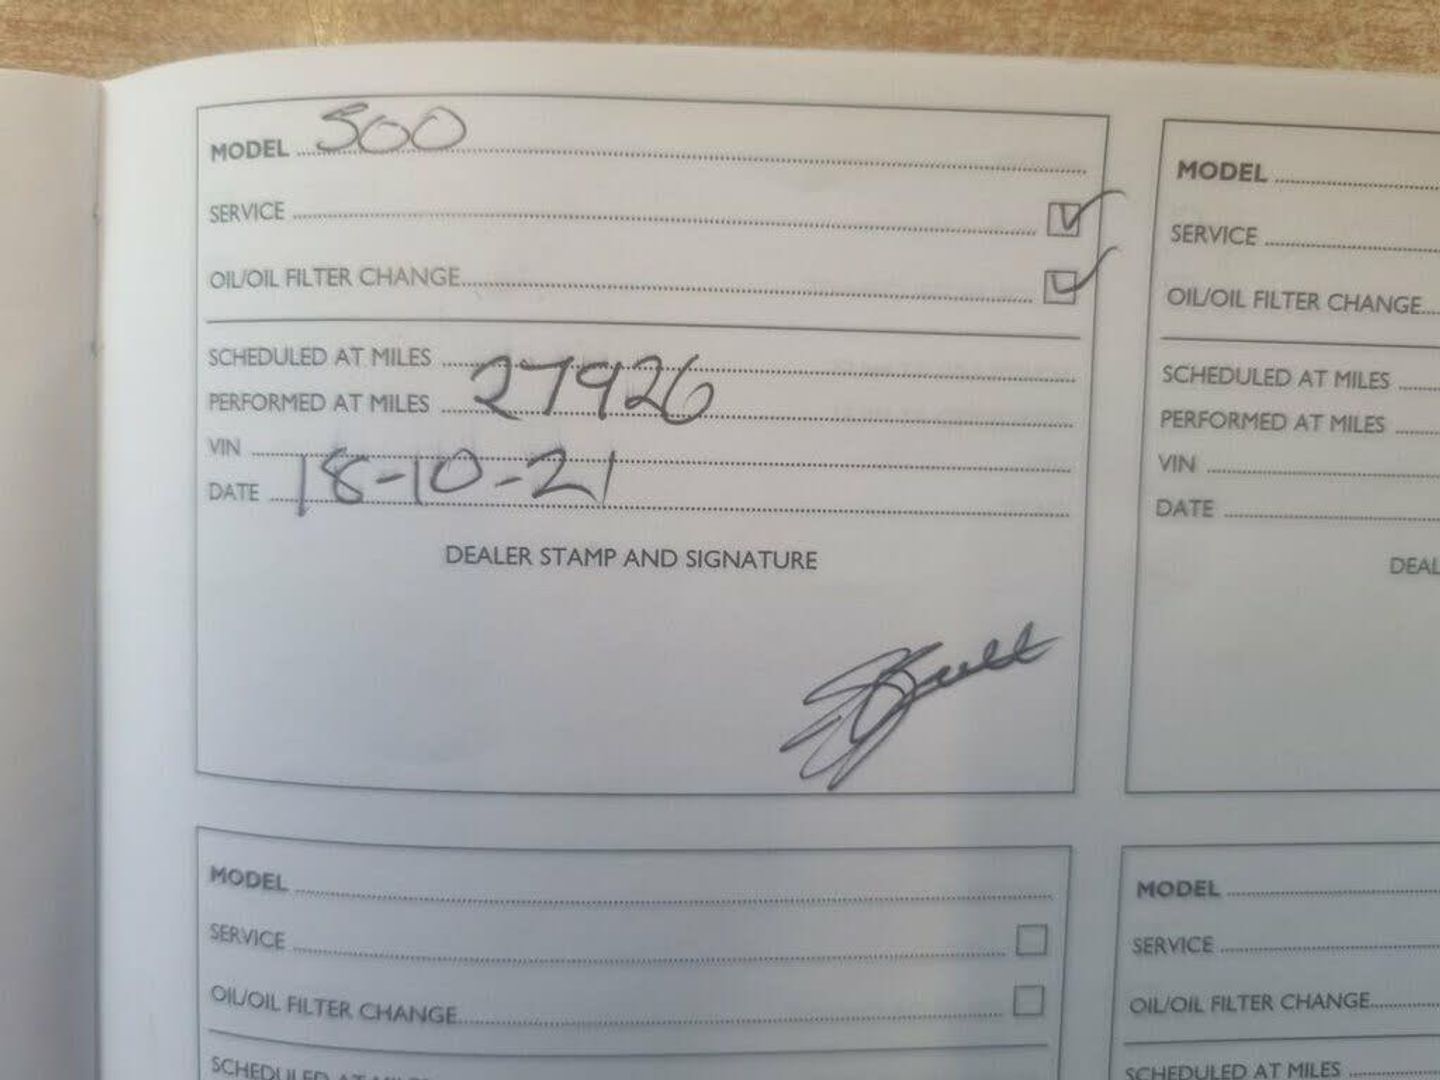 MODEL 500
SERVICE ☑
OIL/OIL FILTER CHANGE ☑
SCHEDULED AT MILES
PERFORMED AT MILES 27926
VIN
DATE 18-10-21
DEALER STAMP AND SIGNATURE
MODEL
SERVICE
OIL/OIL FILTER CHANGE
SCHEDULED AT MILES
PERFORMED AT MILES
VIN
DATE
DEAL
MODEL
SERVICE ☐
OIL/OIL FILTER CHANGE ☐
SCHEDULED AT MILES
MODEL
SERVICE
OIL/OIL FILTER CHANGE
SCHEDULED AT MILES